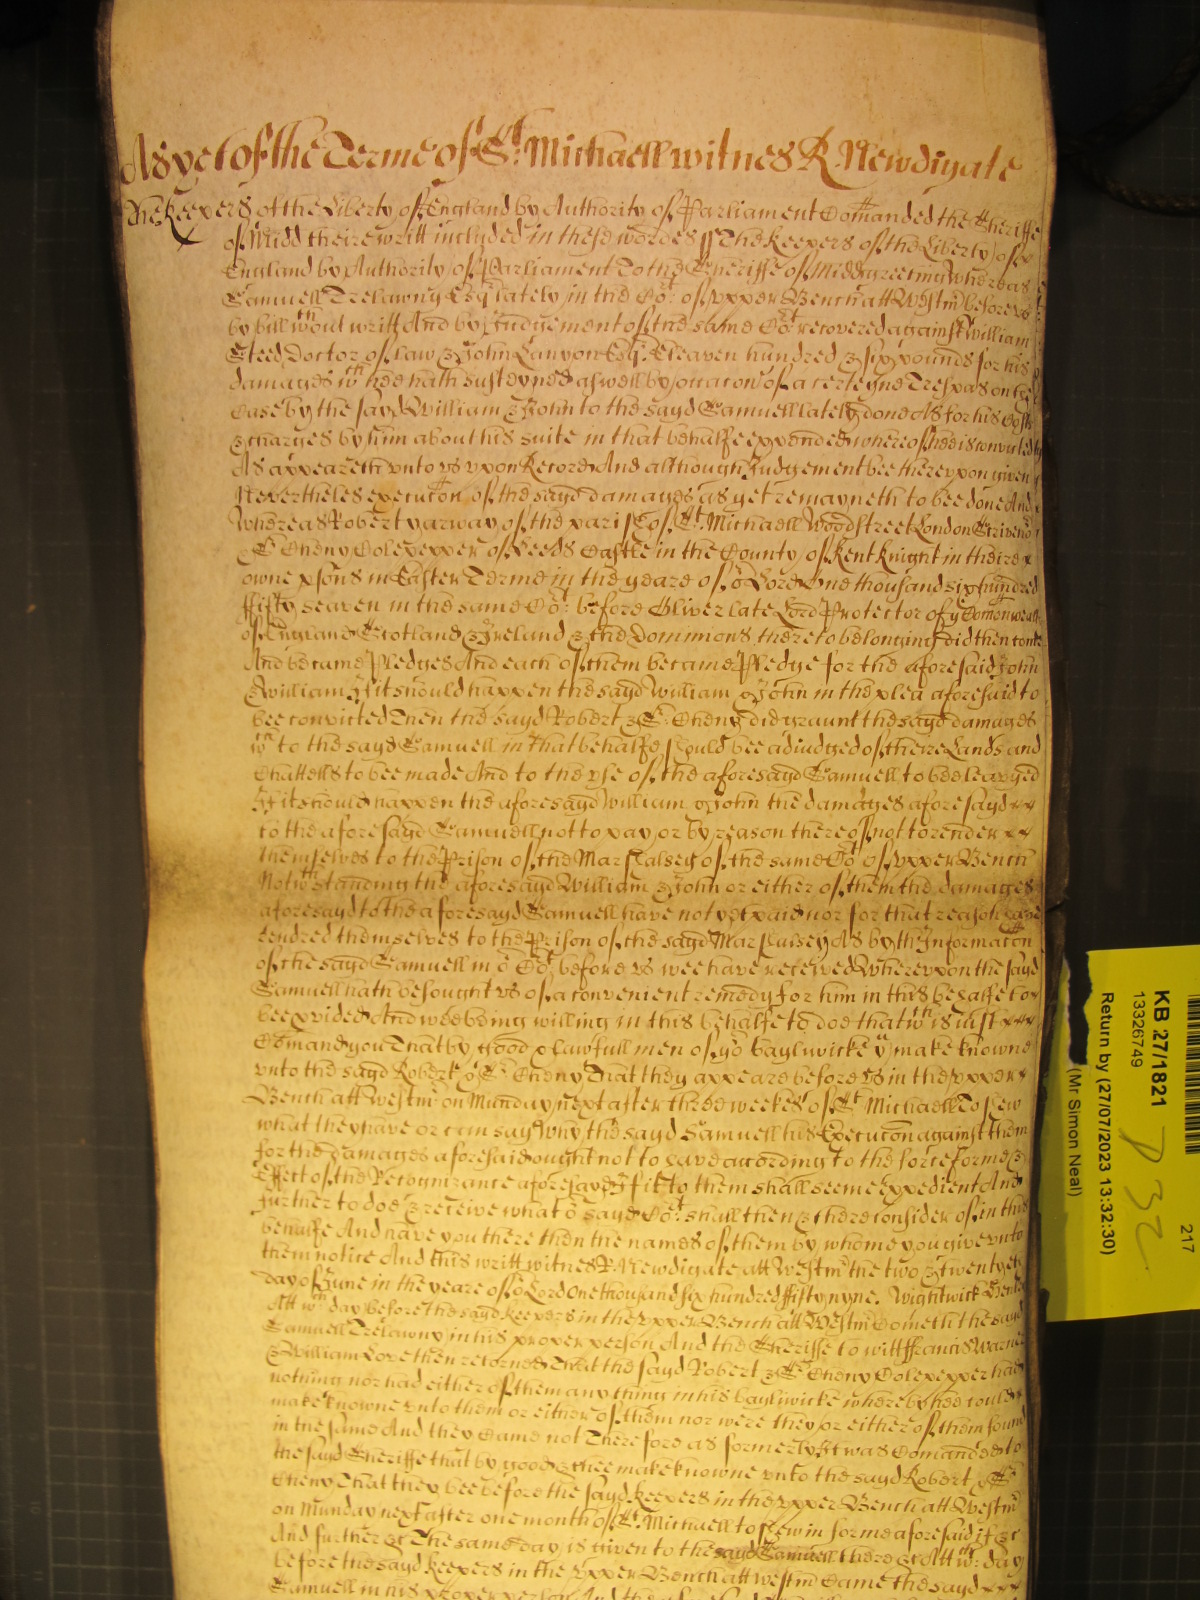 As yet of the Terme of St. Michaell witnes R. Newdigate
The Keepers of the Liberty of England by Authority of Parliament Comanded the Sheriffe
of Midd theire writt included in these wordes ss The Keepers of the Liberty of
England by Authority of Parliament To the Sheriffe of Midd greeting whereas
Samuell Trelawny Esqr lately in the Cort of upper Bench att Westm before us
by bill wthout writt And by Judgement of the same Cort recovered against William
Steed Doctor of law & John Lanyon Esqr Eleaven hundred & six pounds for his
damages wch hee hath susteyned aswell by occacon of a certeyne Trespas on the
Case by the sayd William & John to the sayd Samuell lately done As for his Costs
& charges by him about his suite in that behalfe expended whereof hee is convicted
As appeareth unto us upon Record And although Judgement bee thereupon given
Nevertheles execucon of the sayd damages as yet remayneth to bee done And
Whereas Robert yarway of the parish of St. Michaell Woodstreet London Scriven
& Sr Cheny Colepepper of Leeds Castle in the County of Kent Knight in theire
owne psons in Easter Terme in the yeare of or Lord One thousand six hundred
fifty seaven in the same Cort before Oliver late Lord Protector of ye Comonwealth
of England Scotland & Ireland & the Dominions thereto belonging did then come
And became Pledges And each of them became Pledge for the aforesaid John
& William If it should happen the sayd William & John in the plea aforesaid to
bee convicted Then the sayd Robert & Sr Cheny did graunt the sayd damages
wch to the sayd Samuell in that behalfe should bee adiudged of theire Lands and
Chattells to bee made And to the use of the aforesayd Samuell to bee leavyed
If it should happen the aforesayd William & John the damages aforesayd
to the aforesayd Samuell not to pay or by reason thereof not to render
themselves to the Prison of the Marshalsey of the same Cort of upper Bench
Notwthstanding the aforesayd William & John or either of them the damages
aforesayd to the aforesayd Samuell have not yet paid nor for that reason have
rendred themselves to the Prison of the sayd Marshalsey As by the Informacon
of the sayd Samuell in or Cort before us wee have received Whereupon the sayd
Samuell hath besought us of a convenient remedy for him in this behalfe to
bee pvided And wee being willing in this behalfe to doe that wch is iust
Comand you That by good & lawfull men of yor baylywicke you make knowne
unto the sayd Robert & Sr Cheny That they appeare before us in the upper
Bench att Westm on Munday next after three weekes of St Michaell To shew
what they have or can say why the sayd Samuell his Execucon against them
for the damages aforesaid ought not to have according to the force forme &
Effect of the Recognizance aforesayd If it to them shall seeme expedient And
further to doe & receive what or sayd Cort shall then & there consider of in this
behalfe And have you there then the names of them by whome you give unto
them notice And this writt witnes R. Newdigate att Westm the two & twentyeth
day of June in the yeare of or Lord One thousand six hundred fifty nyne. Wightwick
Att wch day before the sayd keepers in the upper Bench att Westm Cometh the sayd
Samuell Trelawny in his proper person And the Sheriffe to witt ffrancis Warner
& William Love then returned That the sayd Robert & Sr Cheny Colepepper had
nothing nor had either of them any thing in his baylywicke whereby hee could
make knowne unto them or either of them nor were they or either of them found
in the same And they Came not Therefore as formerly It was Comanded to
the sayd Sheriffe that by good &c hee make knowne unto the sayd Robert & Sr
Cheny That they bee before the sayd keepers in the upper Bench att Westm
on Munday next after one month of St. Michaell to shew in forme aforesaid if &c
And further &c The same day is given to the sayd Samuell there &c Att wch day
before the sayd keepers in the upper Bench att Westm Came the sayd
Samuell in his proper person And the
217
KB 27/1821
13326749
Return by (27/07/2023 13:32:30)
(Mr Simon Neal)